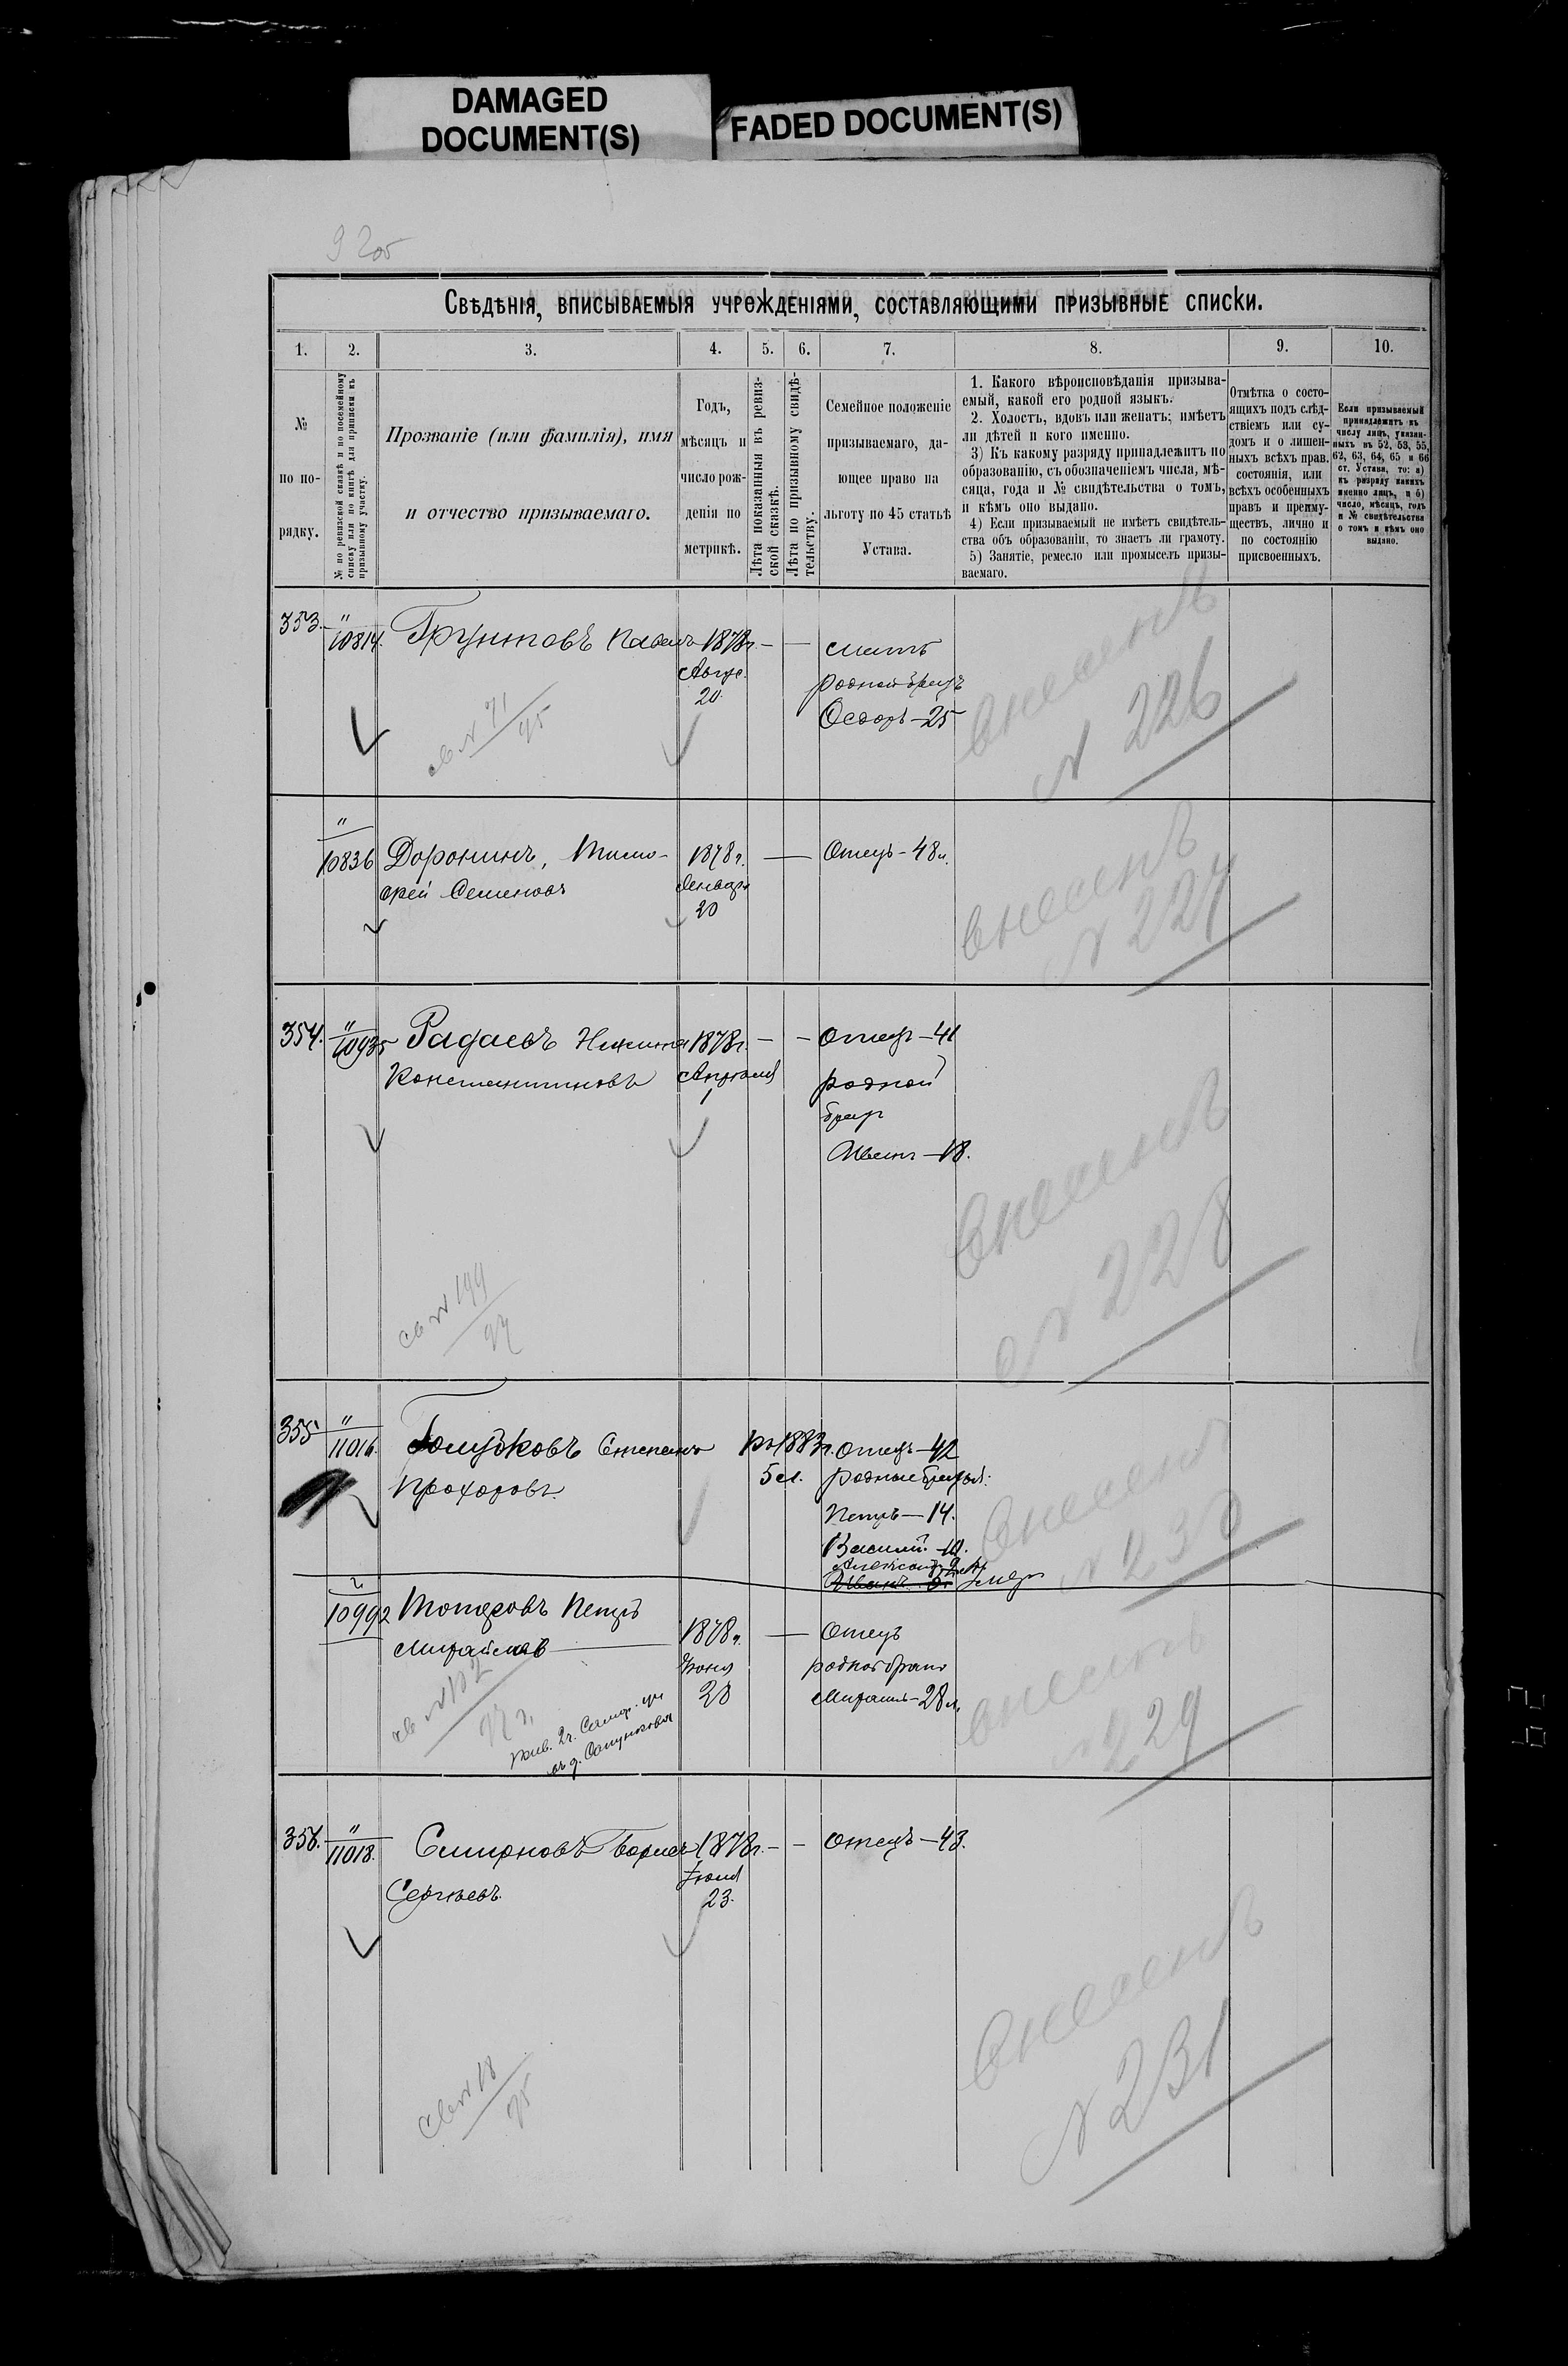 DAMAGED
DOCUMENT(S)
FADED DOCUMENT(S)
Свѣдѣнія, вписываемыя учрежденіями, составляющими призывные списки.
1. 2. 3. 4. 5. 6. 7. 8. 9. 10.
№
по по-
рядку.
№ по ревизской сказкѣ и по посемейному
списку или по книгѣ для приписки къ
призывному участку.
Прозваніе (или фамилія), имя
и отчество призываемаго.
Годъ,
мѣсяцъ и
число рож-
денія по
метрикѣ.
Лѣта показанныя въ ревиз-
ской сказкѣ.
Лѣта по призывному свидѣ-
тельству.
Семейное положеніе
призываемаго, да-
ющее право на
льготу по 45 статьѣ
Устава.
1. Какого вѣроисповѣданія призыва-
емый, какой его родной языкъ.
2. Холостъ, вдовъ или женатъ; имѣетъ
ли дѣтей и кого именно.
3) Къ какому разряду принадлежитъ по
образованію, съ обозначеніемъ числа, мѣ-
сяца, года и № свидѣтельства о томъ,
и кѣмъ оно выдано.
4) Если призываемый не имѣетъ свидѣтель-
ства объ образованіи, то знаетъ ли грамоту.
5) Занятіе, ремесло или промыселъ призы-
ваемаго.
Отмѣтка о состо-
ящихъ подъ слѣд-
ствіемъ или су-
домъ и о лишен-
ныхъ всѣхъ прав.
состоянія, или
всѣхъ особенныхъ
правъ и преиму-
ществъ, лично и
по состоянію
присвоенныхъ.
Если призываемый
принадлежитъ къ
числу лицъ, указан-
ныхъ въ 52, 53, 55,
62, 63, 64, 65 и 66
ст. Устава, то: а)
къ разряду какихъ
именно лицъ, и б)
число, мѣсяцъ, годъ
и № свидѣтельства
о томъ и кѣмъ оно
выдано.
353. " 10814. Грунтовъ Павелъ 1878г. — — мать
Авгус. родной братъ
20. Ѳедоръ — 25
св № 71/95
внесенъ
№ 226
" 10836 Доронинъ, Тимо- 1878г. — Отецъ - 48л.
фей Семеновъ Января
20
внесенъ
№ 227
354. " 10935 Радаевъ Никита 1878г. — — Отецъ — 41
Константиновъ Апрѣля родной
1 братъ
Иванъ — 18.
св № 199/97
внесенъ
№ 228
355 " 11016. Голубковъ Степанъ ро 1883г. отецъ — 42
Прохоровъ. 5 л. родные братья:
Петръ — 14.
Василій — 10.
Александръ
Иванъ умеръ
внесенъ
№ 230
10992 Топоровъ Петръ
Михайловъ 1878г. — Отецъ
Іюня родной братъ
20 Михаилъ - 28 л.
св № 102/97 г.
внесенъ
№ 229
356. " 11018. Смирновъ Борисъ 1878г. — — отецъ — 43.
Сергѣевъ. Іюля
23.
св № 18/95
внесенъ
№ 231